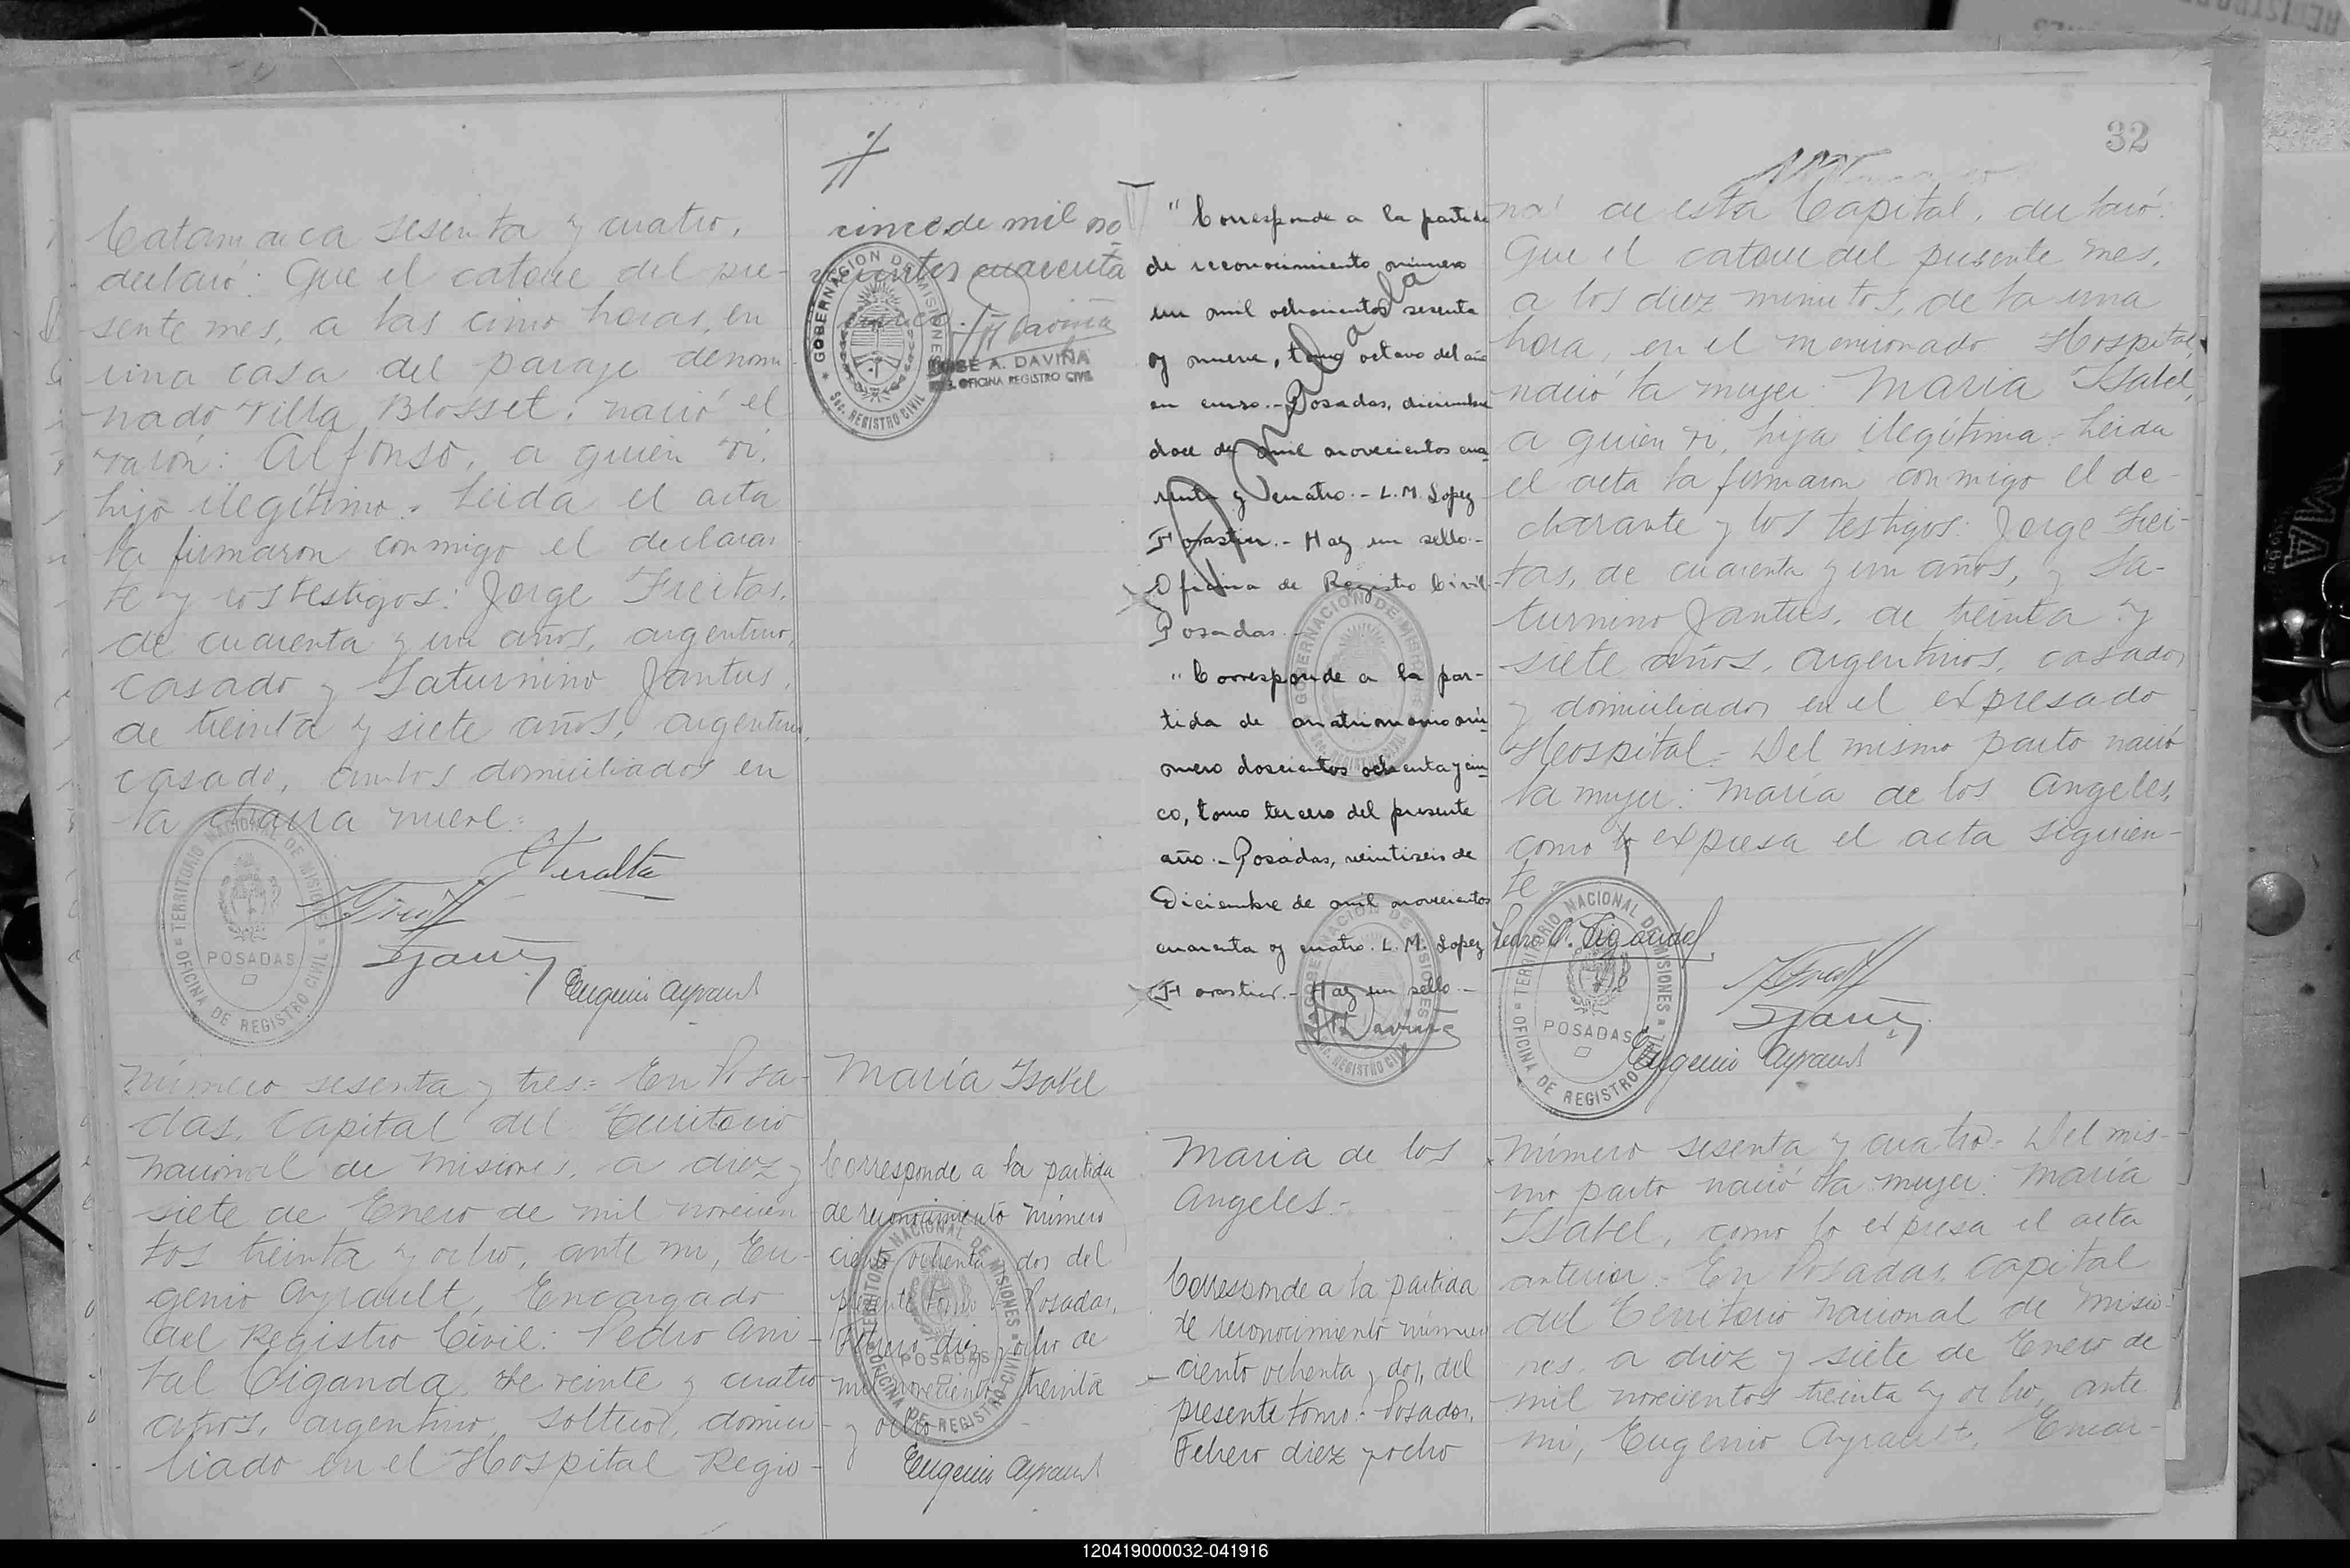 32
Catamarca sesenta y cuatro,
declaró: Que el catorce del pre-
sente mes, a las cinco horas, en
una casa del paraje denomi-
nado Villa Blosset, nació el
varón: Alfonso, a quien vi,
hijo ilegítimo.- Leida el acta
la firmaron conmigo el declaran
te y los testigos: Jorge Freitas,
de cuarenta y un años, argentino,
casado y Saturnino Jantus,
de treinta y siete años, argentino,
casado, ambos domiciliados en
la chacra nueve=
Peralta
Eugenio Ayrault
TERRITORIO NACIONAL DE MISIONES
POSADAS
OFICINA DE REGISTRO CIVIL
Número sesenta y tres= En Posa-
das, Capital del Territorio
nacional de Misiones, a diez y
siete de Enero de mil novecien
tos treinta y ocho, ante mi, Eu-
genio Ayrault, Encargado
del Registro Civil: Pedro Ani-
bal Ciganda, de veinte y cuatro
años, argentino, soltero, domici-
liado en el Hospital Regio-
cinco de mil no
vecientos cuarenta
cinco.-
GOBERNACION DE MISIONES
Sec. REGISTRO CIVIL
JOSE A. DAVIÑA
OFICINA REGISTRO CIVIL
María Isabel
Corresponde a la partida
de reconocimiento número
ciento ochenta y dos del
presente tomo.- Posadas,
Febrero diez y ocho de
mil novecientos treinta
y ocho
TERRITORIO NACIONAL DE MISIONES
POSADAS
OFICINA DE REGISTRO CIVIL
Eugenio Ayrault
"Corresponde a la partida
de reconocimiento número
un mil ochocientos sesenta
y nueve, tomo octavo del año
en curso.- Posadas, diciembre
doce de mil novecientos cua
renta y cuatro.- L.M. Lopez
Forastier.- Hay un sello.-
Oficina de Registro Civil-
Posadas.-
Anulada
"Corresponde a la par-
tida de matrimonio nú
mero doscientos ochenta y cin
co, tomo tercero del presente
año.- Posadas, veintiseis de
Diciembre de mil novecientos
cuarenta y cuatro. L. M. Lopez
Forastier.- Hay un sello.-
Daviña
GOBERNACION DE MISIONES
Sec. REGISTRO CIVIL
GOBERNACION DE MISIONES
Sec. REGISTRO CIVIL
Maria de los
Angeles-
Corresponde a la partida
de reconocimiento número
ciento ochenta y dos, del
presente tomo.- Posadas,
Febrero diez y ocho
nal de esta Capital, declaró:
Que el catorce del presente mes,
a los diez minutos, de la una
hora, en el mencionado Hospital,
nació la mujer: María Isabel,
a quien vi, hija ilegítima.- Leida
el acta la firmaron conmigo el de-
clarante y los testigos: Jorge Frei-
tas, de cuarenta y un años, y Sa-
turnino Jantus, de treinta y
siete años, argentinos, casados
y domiciliados en el expresado
Hospital.- Del mismo parto nació
la mujer: María de los Angeles,
como lo expresa el acta siguien-
te=
Pedro A. Ciganda
Eugenio Ayrault
TERRITORIO NACIONAL DE MISIONES
POSADAS
OFICINA DE REGISTRO CIVIL
Número sesenta y cuatro- Del mis-
mo parto nació la mujer: María
Isabel, como lo expresa el acta
anterior.- En Posadas, Capital
del Territorio nacional de Misio-
nes, a diez y siete de Enero de
mil novecientos treinta y ocho, ante
mi, Eugenio Ayrault, Encar-
120419000032-041916